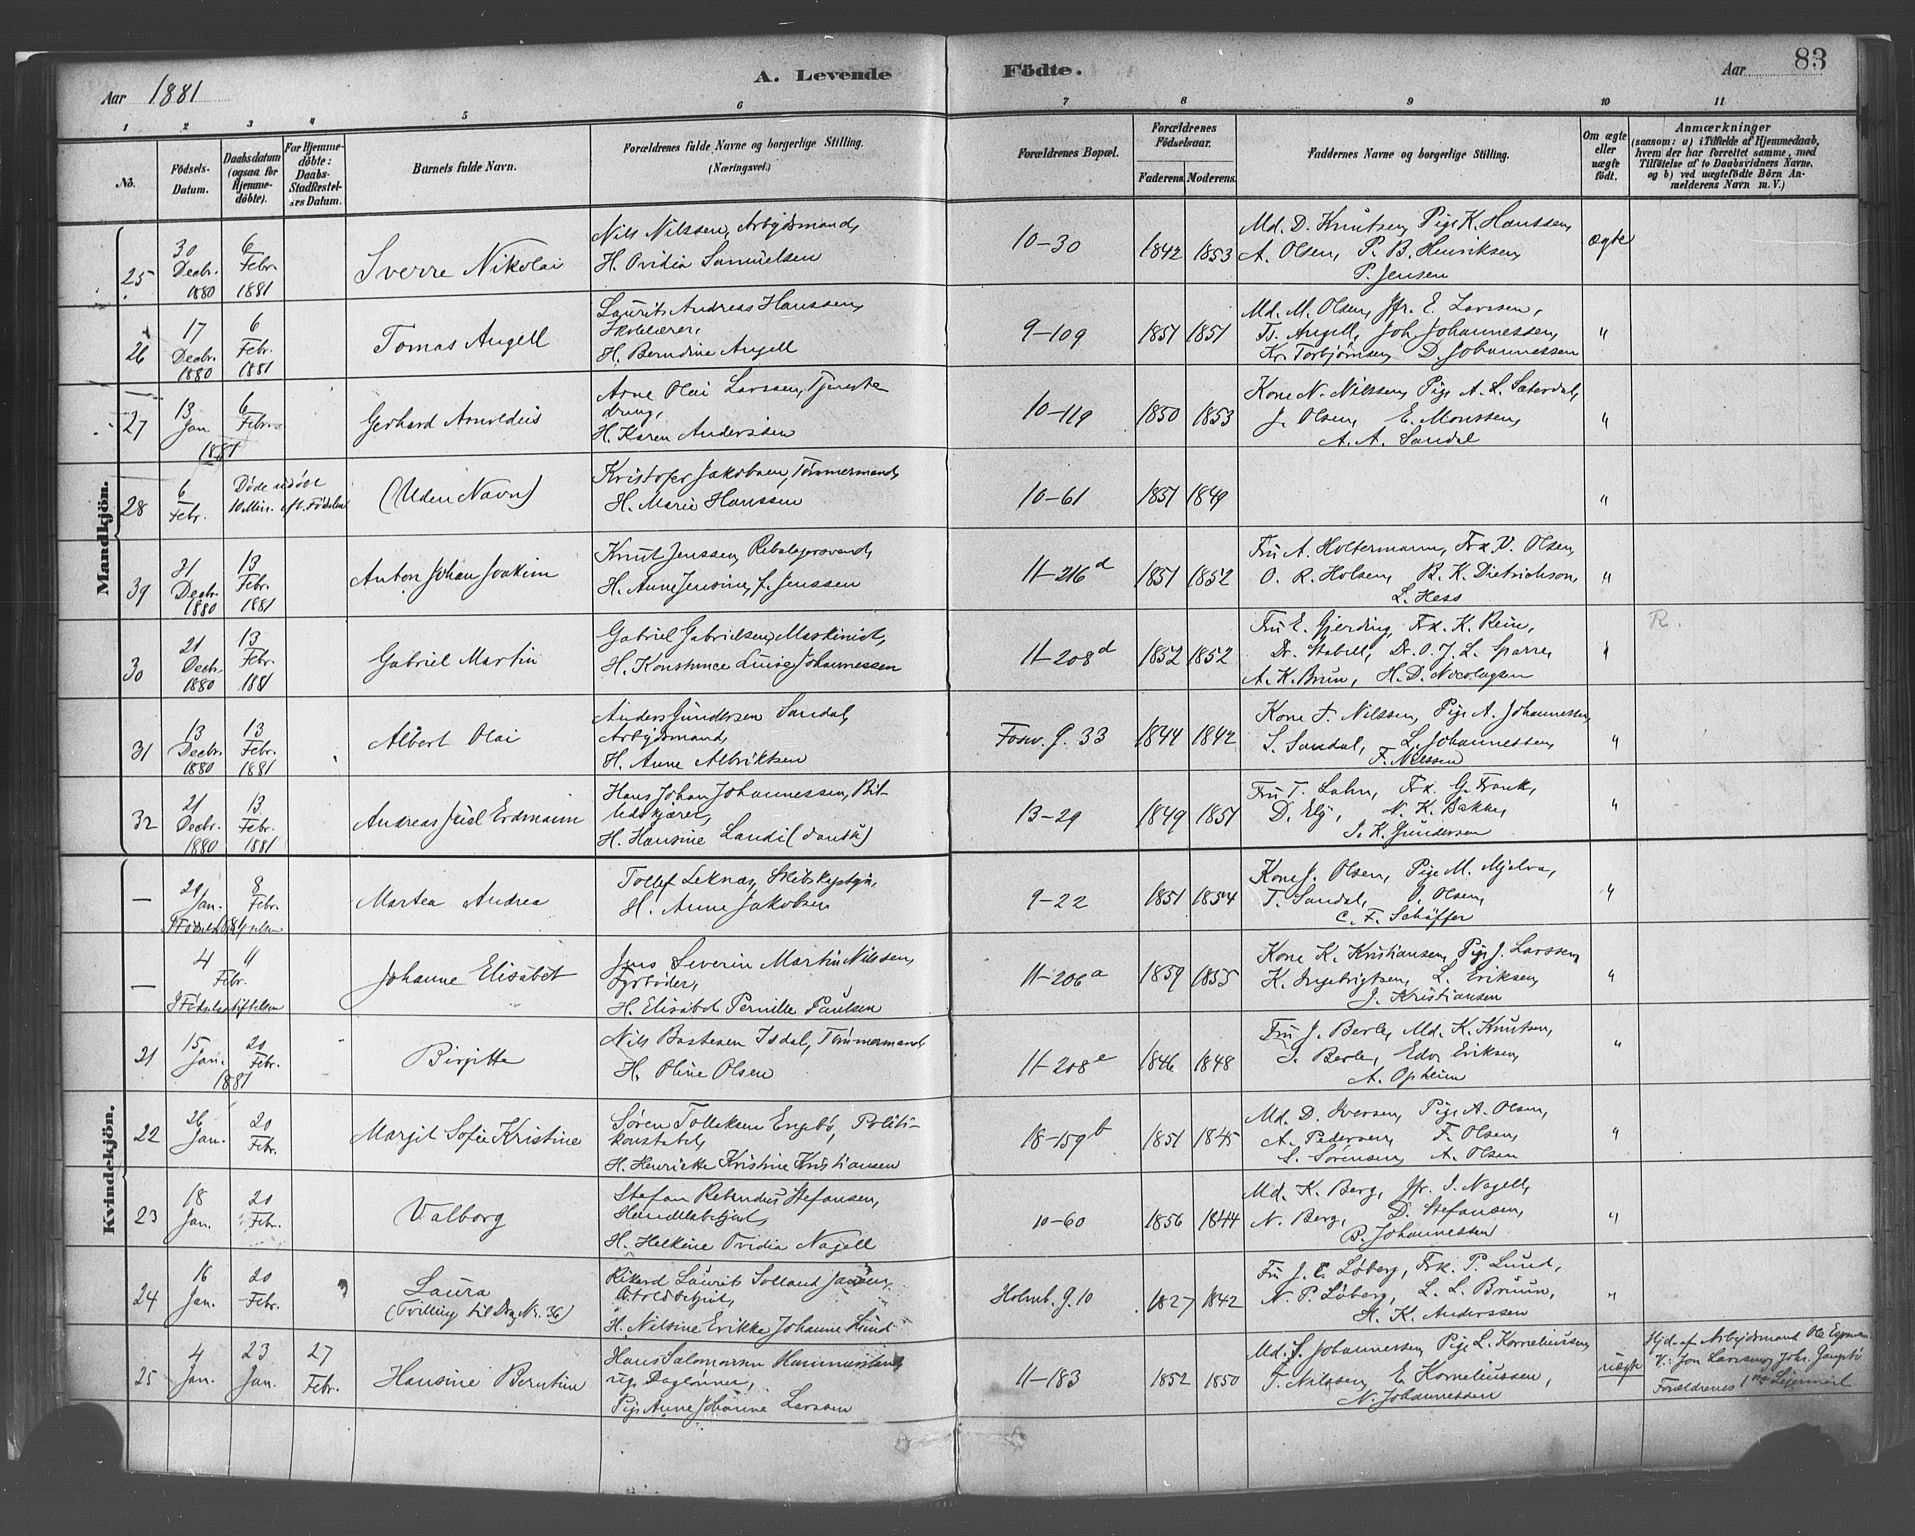 Aar 1881
A. Levende Födte.
Aar 83
1 2 3 4 5 6 7 8 9 10 11
No.
Födsels-
Datum.
Daabsdatum
(ogsaa for
Hjemme-
döbte).
For Hjemme-
döbte:
Daabs-
Stadfæstel-
ses Datum.
Barnets fulde Navn.
Forældrenes fulde Navne og borgerlige Stilling.
(Næringsvei.)
Forældrenes Bopæl.
Forældrenes
Födselsaar.
Faderens. Moderens.
Faddernes Navne og borgerlige Stilling.
Om ægte
eller
uægte
födt.
Anmærkninger
(saasom: a) i Tilfælde af Hjemmedaab,
hvem der har forrettet samme, med
Tilföielse af to Daabsvidners Navne.
og b) ved uægtefödte Börn An-
melderens Navn m. V.)
Mandkjön.
25
30 Decbr. 1880
6 Febr. 1881
Sverre Nikolai
Nils Nilssen, Arbejdsmand,
H. Ovidia Samuelsen
10-30
1842 1853
Md. D. Knutsen, Pige K. Hanssen,
A. Olsen, P. B. Henriksen,
P. Jensen
ægte
26
17 Decbr. 1880
6 Febr. 1881
Tomas Angell
Laurits Andreas Hanssen,
Skolelærer,
H. Berndine Angell
9-109
1851 1851
Md. M. Olsen, Jfr. E. Larssen,
Ts. Angell, Joh. Johannessen,
Kr. Torbjørnsen, D. Johannessen
"
27
13 Jan
6 Febr.
1881
Gerhard Arnoldus
Arne Olai Larssen, Tjeneste
dreng,
H. Karen Anderssen
10-119
1850 1853
Kone N. Nilssen, Pige A. L. Sæterdal,
J. Olsen, E. Monssen,
A. A. Sandal
"
28
6 Febr.
Døde udøbt
10 Min. eft. Fødselen
(Uden Navn)
Kristofer Jakobsen, Tømmermand,
H. Marie Hanssen
10-61
1851 1849
"
39
31 Decbr. 1880
13 Febr. 1881
Anton Johan Joakim
Knut Jenssen, Rebslagersvend,
H. Anne Jensine, f. Jenssen
11-216 d
1851 1852
Fru A. Holtermann, Frk. V. Olsen,
O. R. Holsen, B. K. Dietrichson,
L. Hess
"
30
21 Decbr. 1880
13 Febr. 1881
Gabriel Martin
Gabriel Gabrielsen, Maskinist,
H. Konstance Luise Johannessen
11-208 d
1852 1852
Fru E. Gjerding, Frk. K. Rein,
Dr. Stabell, Dr. O. J. L. Sparre,
A. K. Brun, H. D. Nicolaysen
"
R.
31
13 Decbr. 1880
13 Febr. 1881
Albert Olai
Anders Gundersen Sandal,
Arbejdsmand,
H. Anne Albriktsen
Fosw. G. 33
1844 1842
Kone F. Nilssen, Pige A. Johannessen,
S. Sandal, L. Johannessen,
F. Nilssen
"
32
21 Decbr. 1880
13 Febr. 1881
Andreas Juel Erdmann
Hans Johan Johannessen, Bil-
ledskjærer,
H. Hansine Landi (dansk)
13-29
1849 1851
Fru T. Lahn, Frk. G. Frank,
D. Ely, N. K. Bakke,
J. K. Gundersen
"
Kvindekjön.
—
29 Jan.
8 Febr.
I Fødselsstiftelsen
Martea Andrea
Tollef Leknæs, Skibskaptein,
H. Anne Jakobsen
9-22
1851 1854
Kone J. Olsen, Pige M. Mjelva,
T. Sandal, O. Olsen,
C. F. Schäffer
"
—
4 "
Febr.
I Fødselsstiftelsen
Johanne Elisabet
Jens Severin Martin Nilssen,
Fyrbøder,
H. Elisabet Pernille Paulsen
11-206 a
1859 1855
Kone K. Kristiansen, Pige J. Larssen,
K. Ingebrigtsen, L. Eriksen,
J. Kristiansen
"
21
15 Jan.
20 Febr.
1881
Birgitte
Nils Bastesen Isdal, Tømmermand,
H. Oline Olsen
11-208 e
1846 1848
Fru J. Berle, Md. K. Knutsen,
S. Berle, Edv. Eriksen,
A. Opheim
"
22
26 Jan.
20 Febr.
Margit Sofie Kristine
Søren Tolleksen Engebø, Politi-
konstabel,
H. Henriette Kristine Kristiansen
18-159 b
1851 1845
Md. D. Iversen, Pige A. Olsen,
A. Pedersen, F. Olsen,
S. Sørensen, A. Olsen
"
23
18 Jan.
20 Febr.
Valborg
Stefan Rebndus Stefansen,
Handelsbetjent,
H. Helkine Ovidia Nagell
10-60
1856 1844
Md. K. Berg, Jfr. J. Nagell,
N. Berg, D. Stefansen,
B. Johannessen
"
24
16 Jan.
20 Febr.
Laura
(Tvilling til Dreng Nr. 36)
Rikard Laurits Solland Jansen,
Toldbetjent,
H. Nilsine Erikke Johanne Lund
Holmb. G. 10
1827 1842
Fru J. C. Løberg, Frk. P. Lund,
N. P. Løberg, L. L. Bruun,
H. K. Anderssen
"
25
4 Jan.
23 Jan.
27 Febr.
Hansine Berntine
Hans Salomonsen Hammersland,
ug. Daglønner,
Pige Anne Johanne Larssen
11-183
1852 1850
Md. S. Johannessen, Pige L. Korneliussen,
T. Nilssen, E. Korneliussen,
N. Johannessen
uægte
Hjd. af Arbejdsmand Ole
V: Jon Larssen, Johs.
Forældrenes 1ste Leiermaal